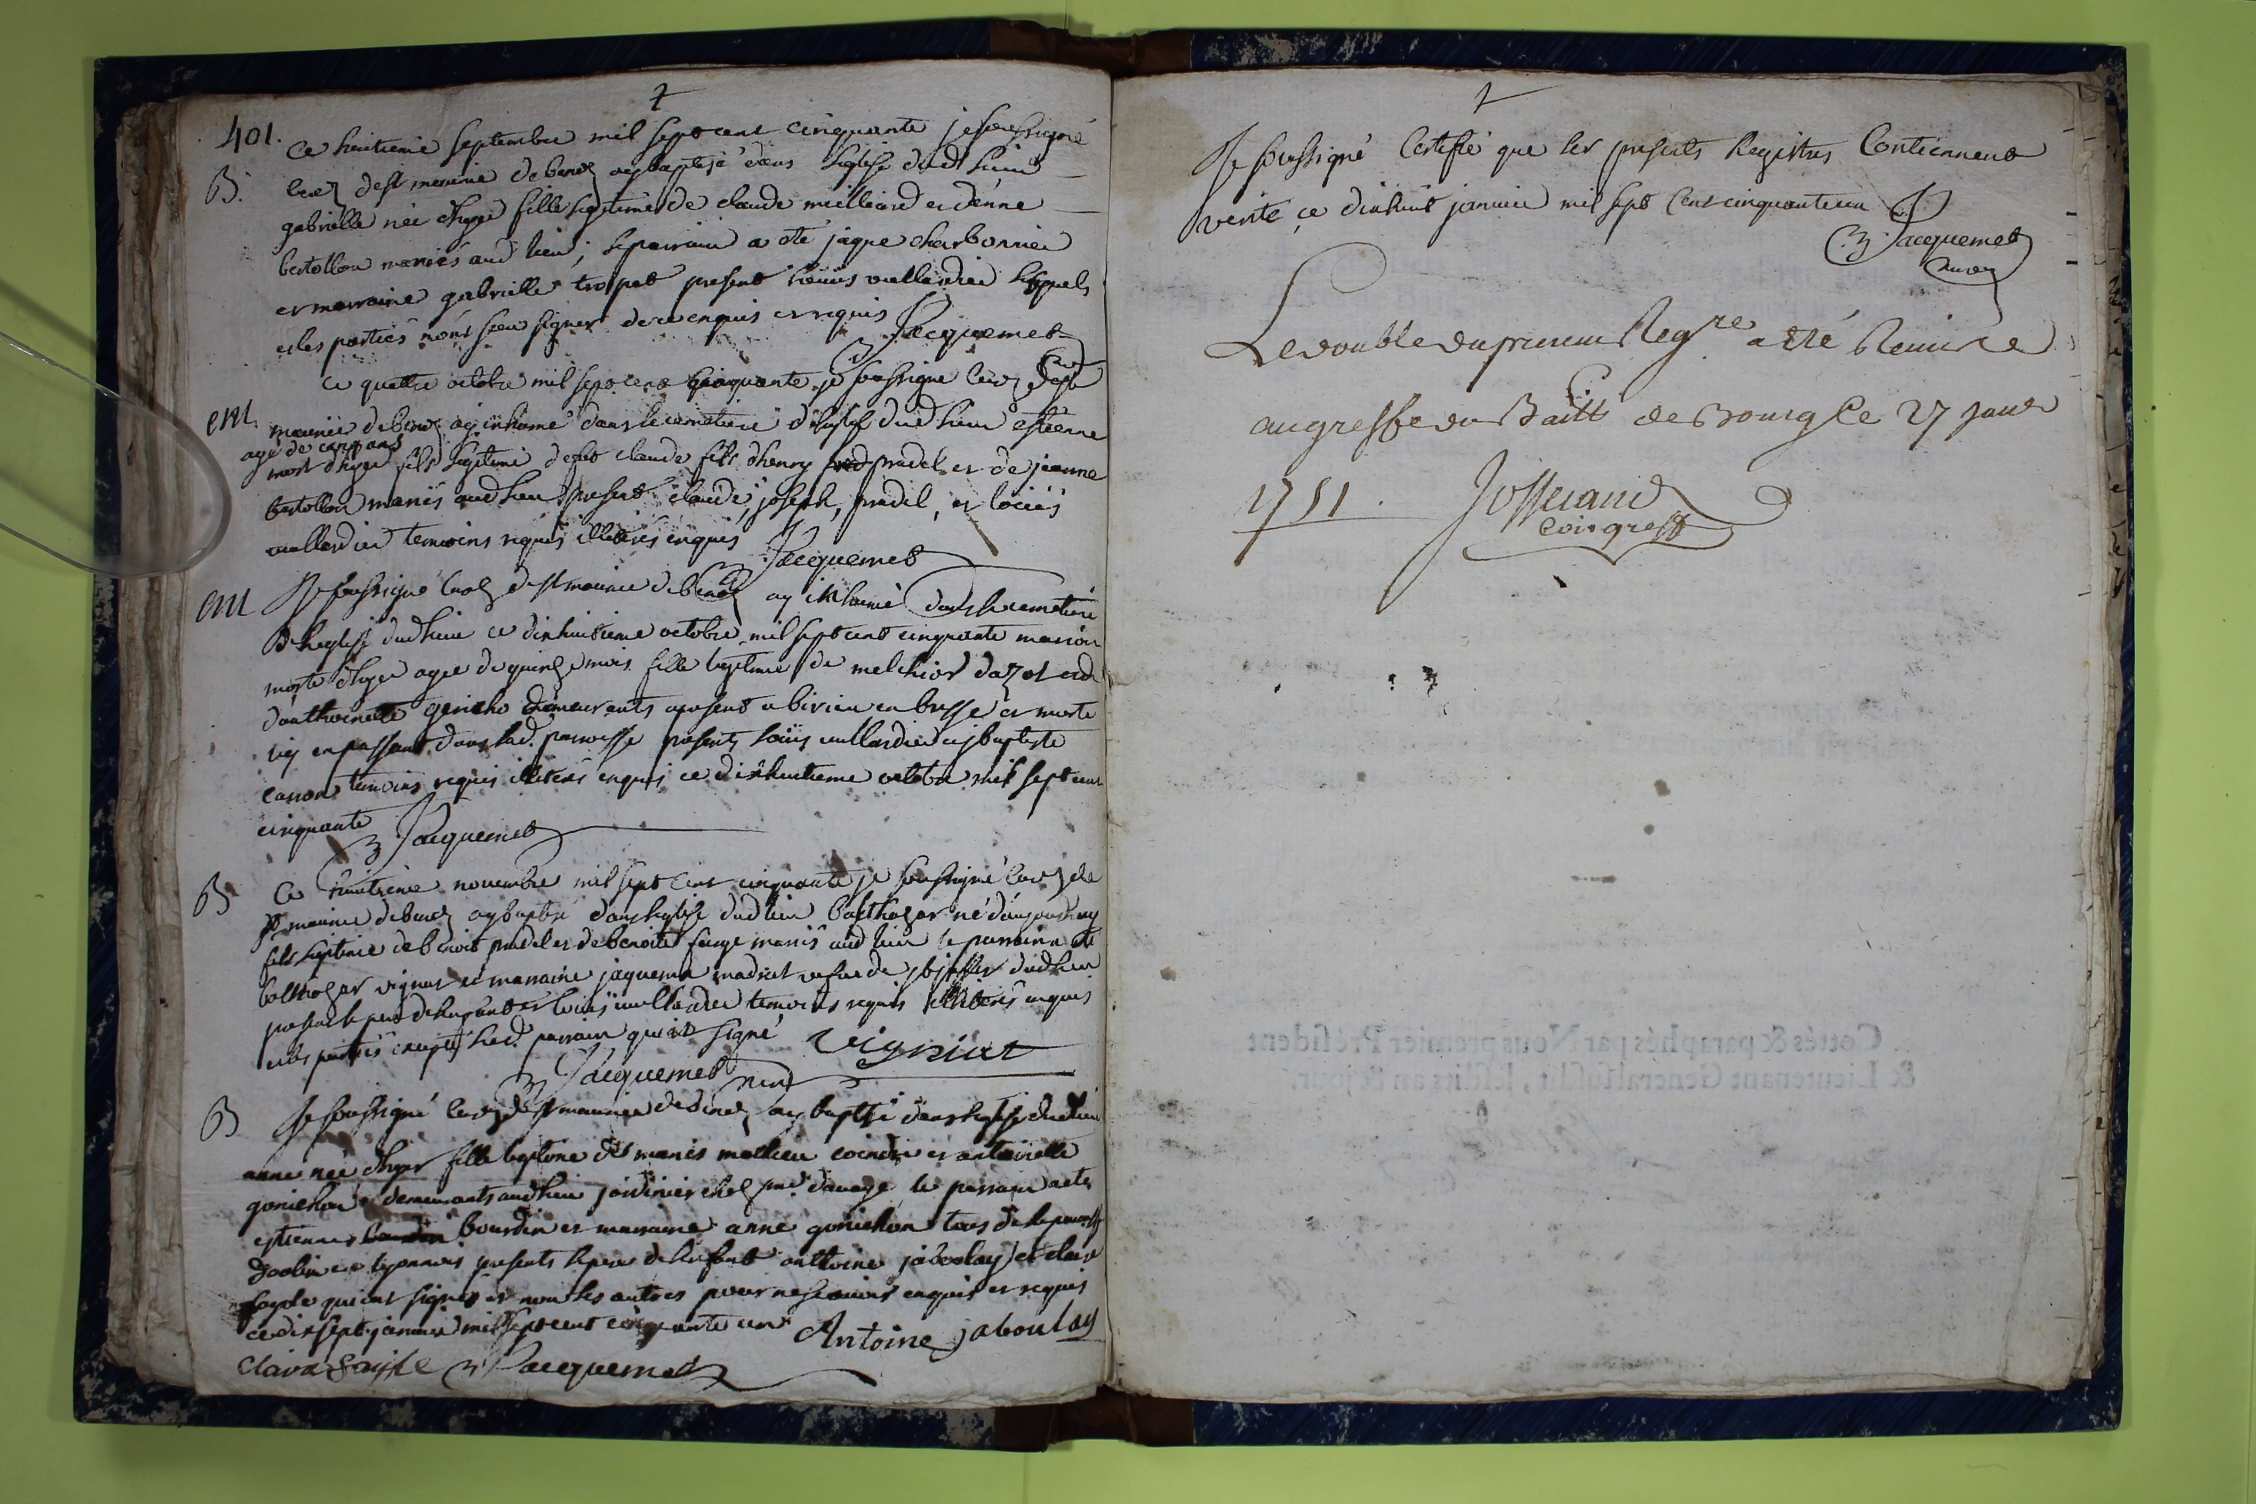 401.
ce huitieme septembre mil sept cent cinquante je soussigné
B. curé de st maurice de beno ay baptisé dans leglise dud lieu
gabrielle née d'hyer fille legitime de claude meilliard et d'enne
bertollon mariés aud lieu, le parrain a eté jaque charbonnier
et marraine gabrielle tropet present loüis vullardier lesquels
et les parties n'ont sceu signer de ce enquis et requis
Jacquemet
ce quattre octobre mil sept cent cinquante je soussigné curé de st
em. maurice de beno ay inhumé dans le cemetiere de leglise dud lieu estienne
agé de cinq ans
mort d'hyer fils legitime de feu claude fils d'henry pradel et de jeanne
bertollon mariés aud lieu present claude, joseph, pradel, et loüis
vullardier temoins requis illiterés enquis
Jacquemet
em Je soussigné curé de st maurice de beno ay inhumé dans le cemetiere
de leglise dud lieu ce dixhuitieme octobre mil sept cent cinquante marion
morte d'hyer agée de quinze mois fille legitime de melchior dazot et
d'anthoinette genicho demeurants apresent a birieu en bresse et morte
icy en passant dans lad. paroisse presents loüis vullardier et j baptiste
carron temoins requis illiterés enquis ce dixhuitieme octobre mil sept cent
cinquante
Jacquemet
B Ce huitieme novembre mil sept cent cinquante je soussigné curé de
st maurice de beno ay baptisé dans leglise dud lieu balthazar né d'aujourdhuy
fils legitime de benoit pradel et de benoite farge mariés aud lieu le parrain a eté
balthazar vignat et marraine jaquema madriat dud lieu
present le pere de l'enfant et loüis vullardier temoins requis illiterés enquis
et les parties excepté led. parrain qui a signé
vigniat
Jacquemet curé
B Je soussigné curé de st maurice de beno ay baptisé dans leglise dud lieu
anne née d'hyer fille legitime des mariés mathieu coindre et antoinette
gonichon demeurants aud lieu jardinier chez mr davaye le parrain a eté
estienne bourdin et marraine anne gonichon tous de la paroisse
en lyonnois presents le pere de l'enfant anthoine jaboulay et claire
fayole qui ont signés et non les autres pour ne scavoir enquis et requis
ce dix sept janvier mil sept cent cinquante un
Antoine jaboulay
Jacquemet
Je soussigné Certifie que les presents Registres Contiennent
verité ce dixhuit janvier mil sept cent cinquante un
Jacquemet
curé
Le double du present Regre a eté Remis
au greffe du Baill de Bourg le 27 janr
1751. Josserand
Coingreff
Cottés & paraphés par Nous premier Président
& Lieutenant Général susdit, lesdits an & jour.